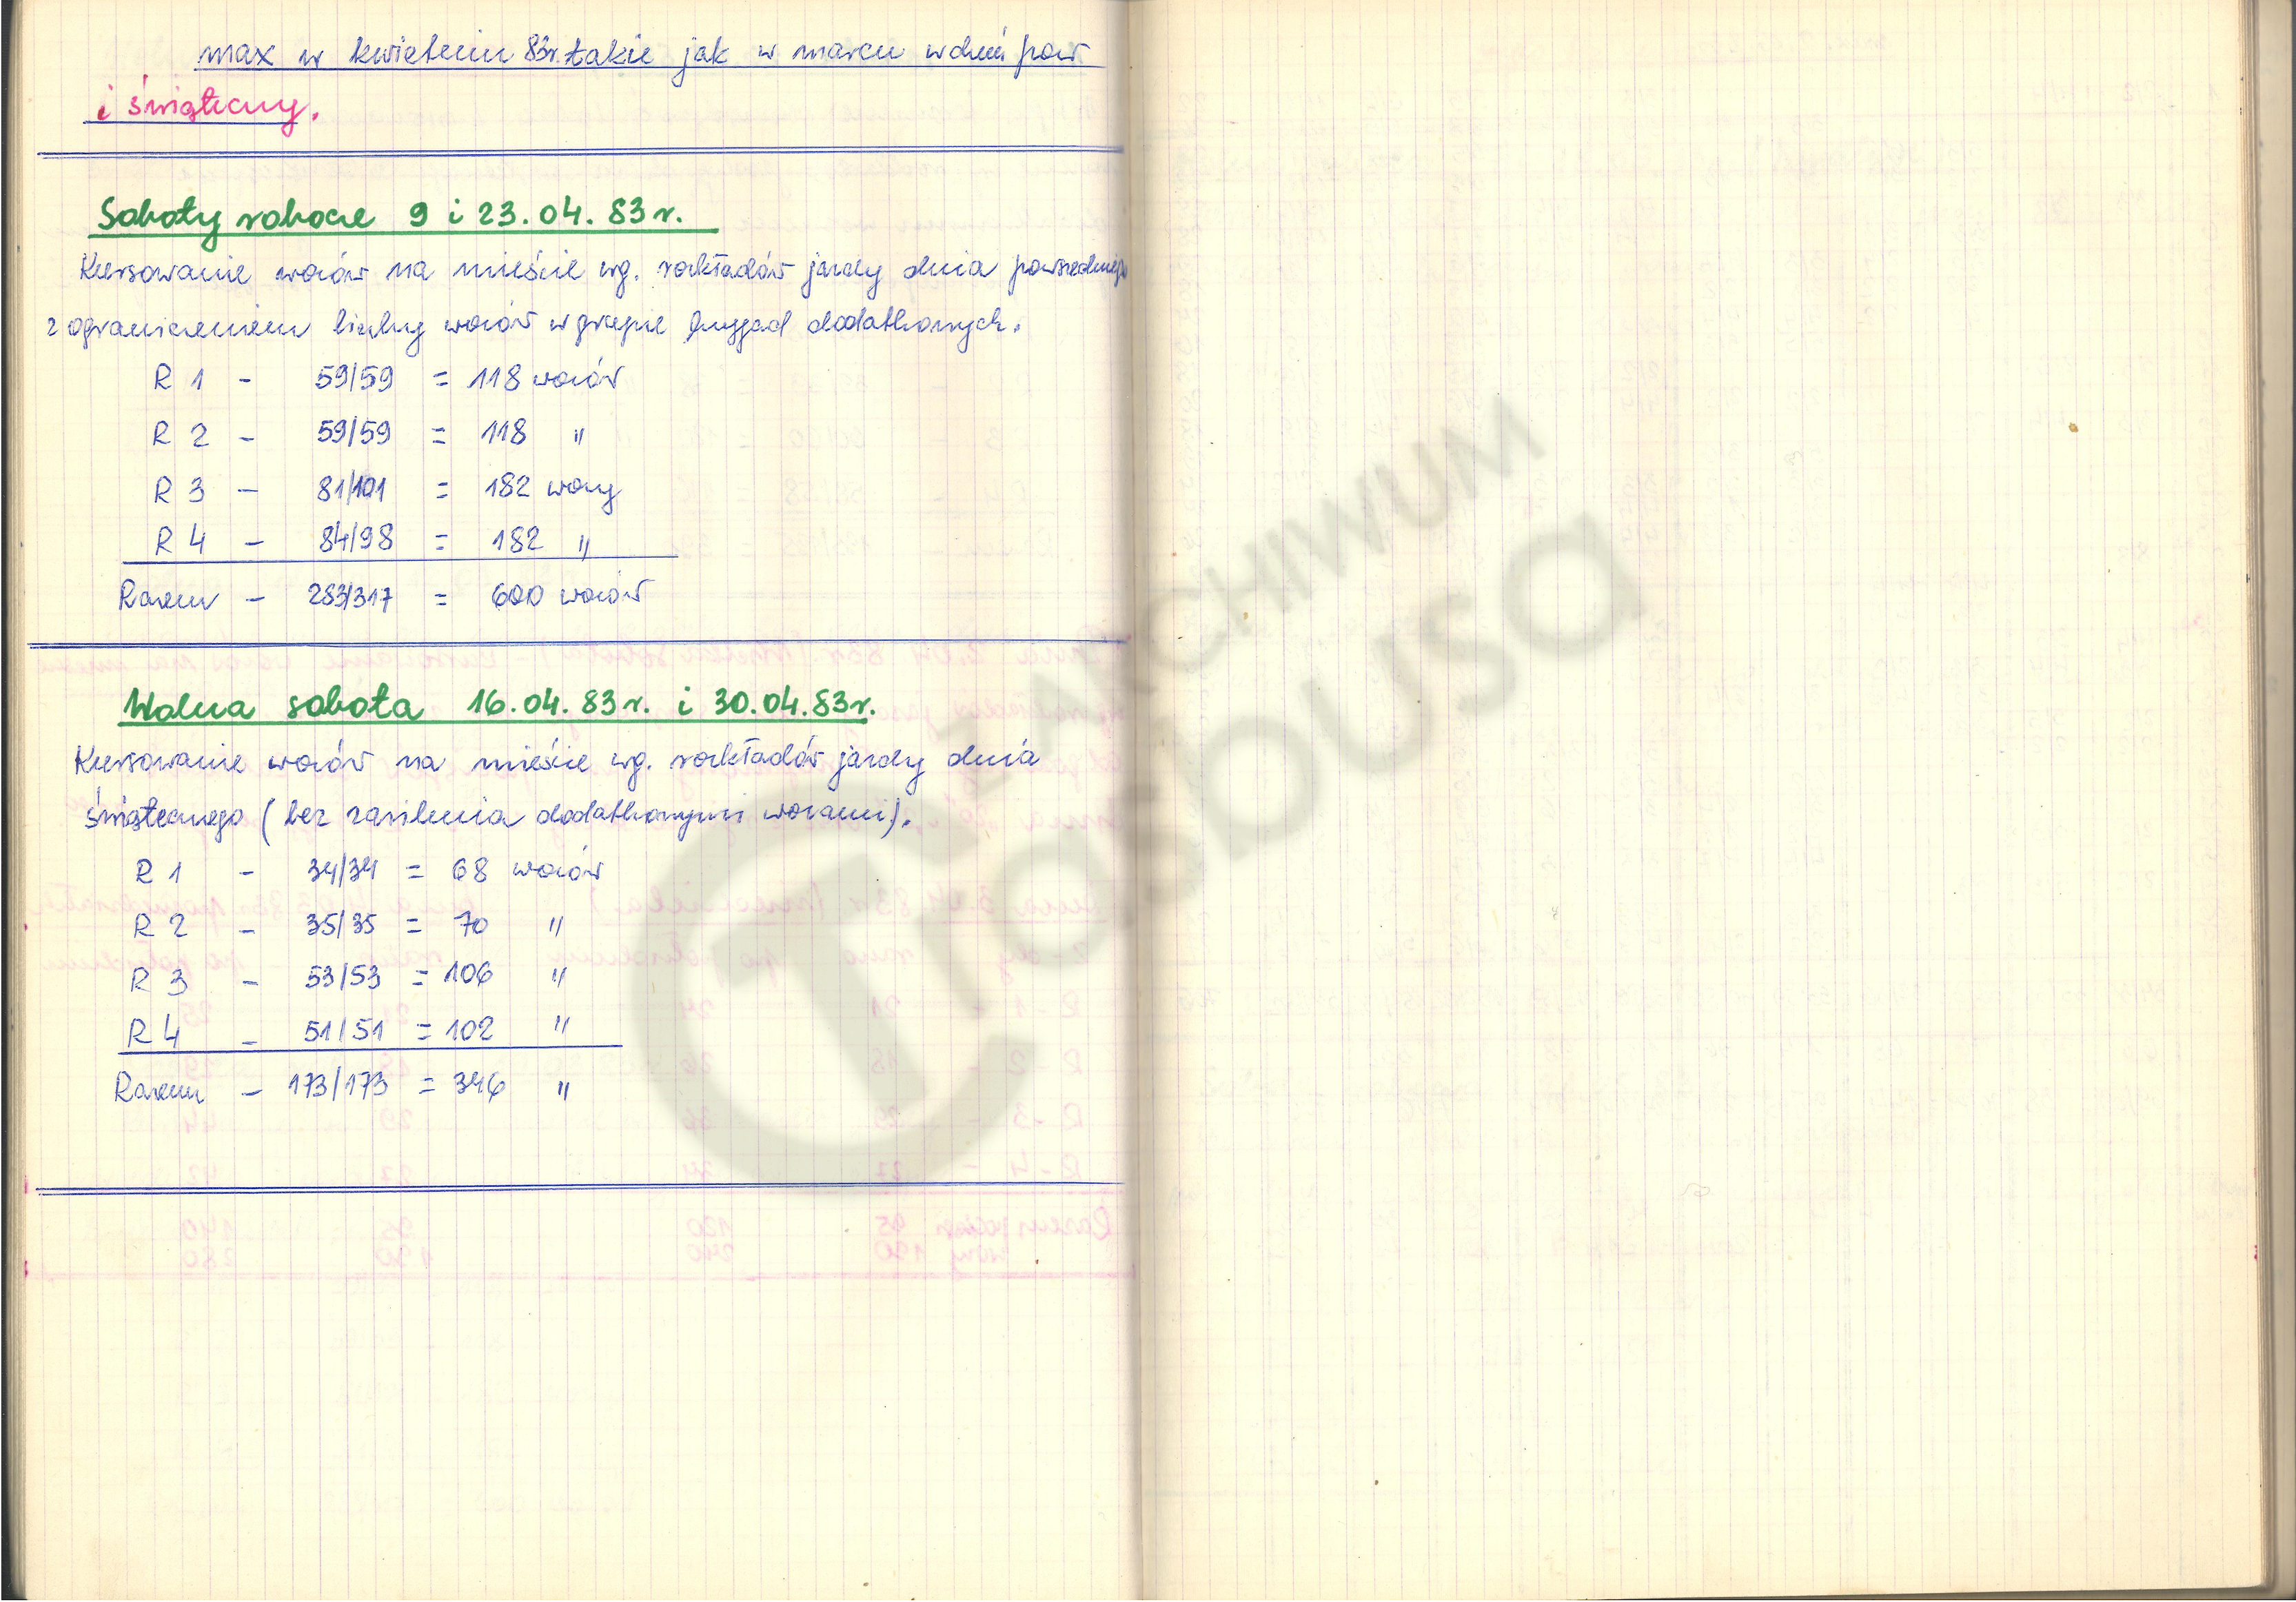 max w kwietniu 83r. takie jak w marcu w dzień pow
i świąteczny.
Soboty robocze 9 i 23.04.83 r.
Kursowanie wozów na mieście wg. rozkładów jazdy dnia powszedniego
z ograniczeniem liczby wozów w grupie brygad dodatkowych.
R 1 - 59/59 = 118 wozów
R 2 - 59/59 = 118 "
R 3 - 81/101 = 182 wozy
R 4 - 84/98 = 182 "
Razem - 283/317 = 600 wozów
Wolna sobota 16.04.83r. i 30.04.83r.
Kursowanie wozów na mieście wg. rozkładów jazdy dnia
świątecznego (bez zasilenia dodatkowymi wozami).
R 1 - 34/34 = 68 wozów
R 2 - 35/35 = 70 "
R 3 - 53/53 = 106 "
R 4 - 51/51 = 102 "
Razem - 173/173 = 346 "
Z ARCHIWUM
Tasbusa